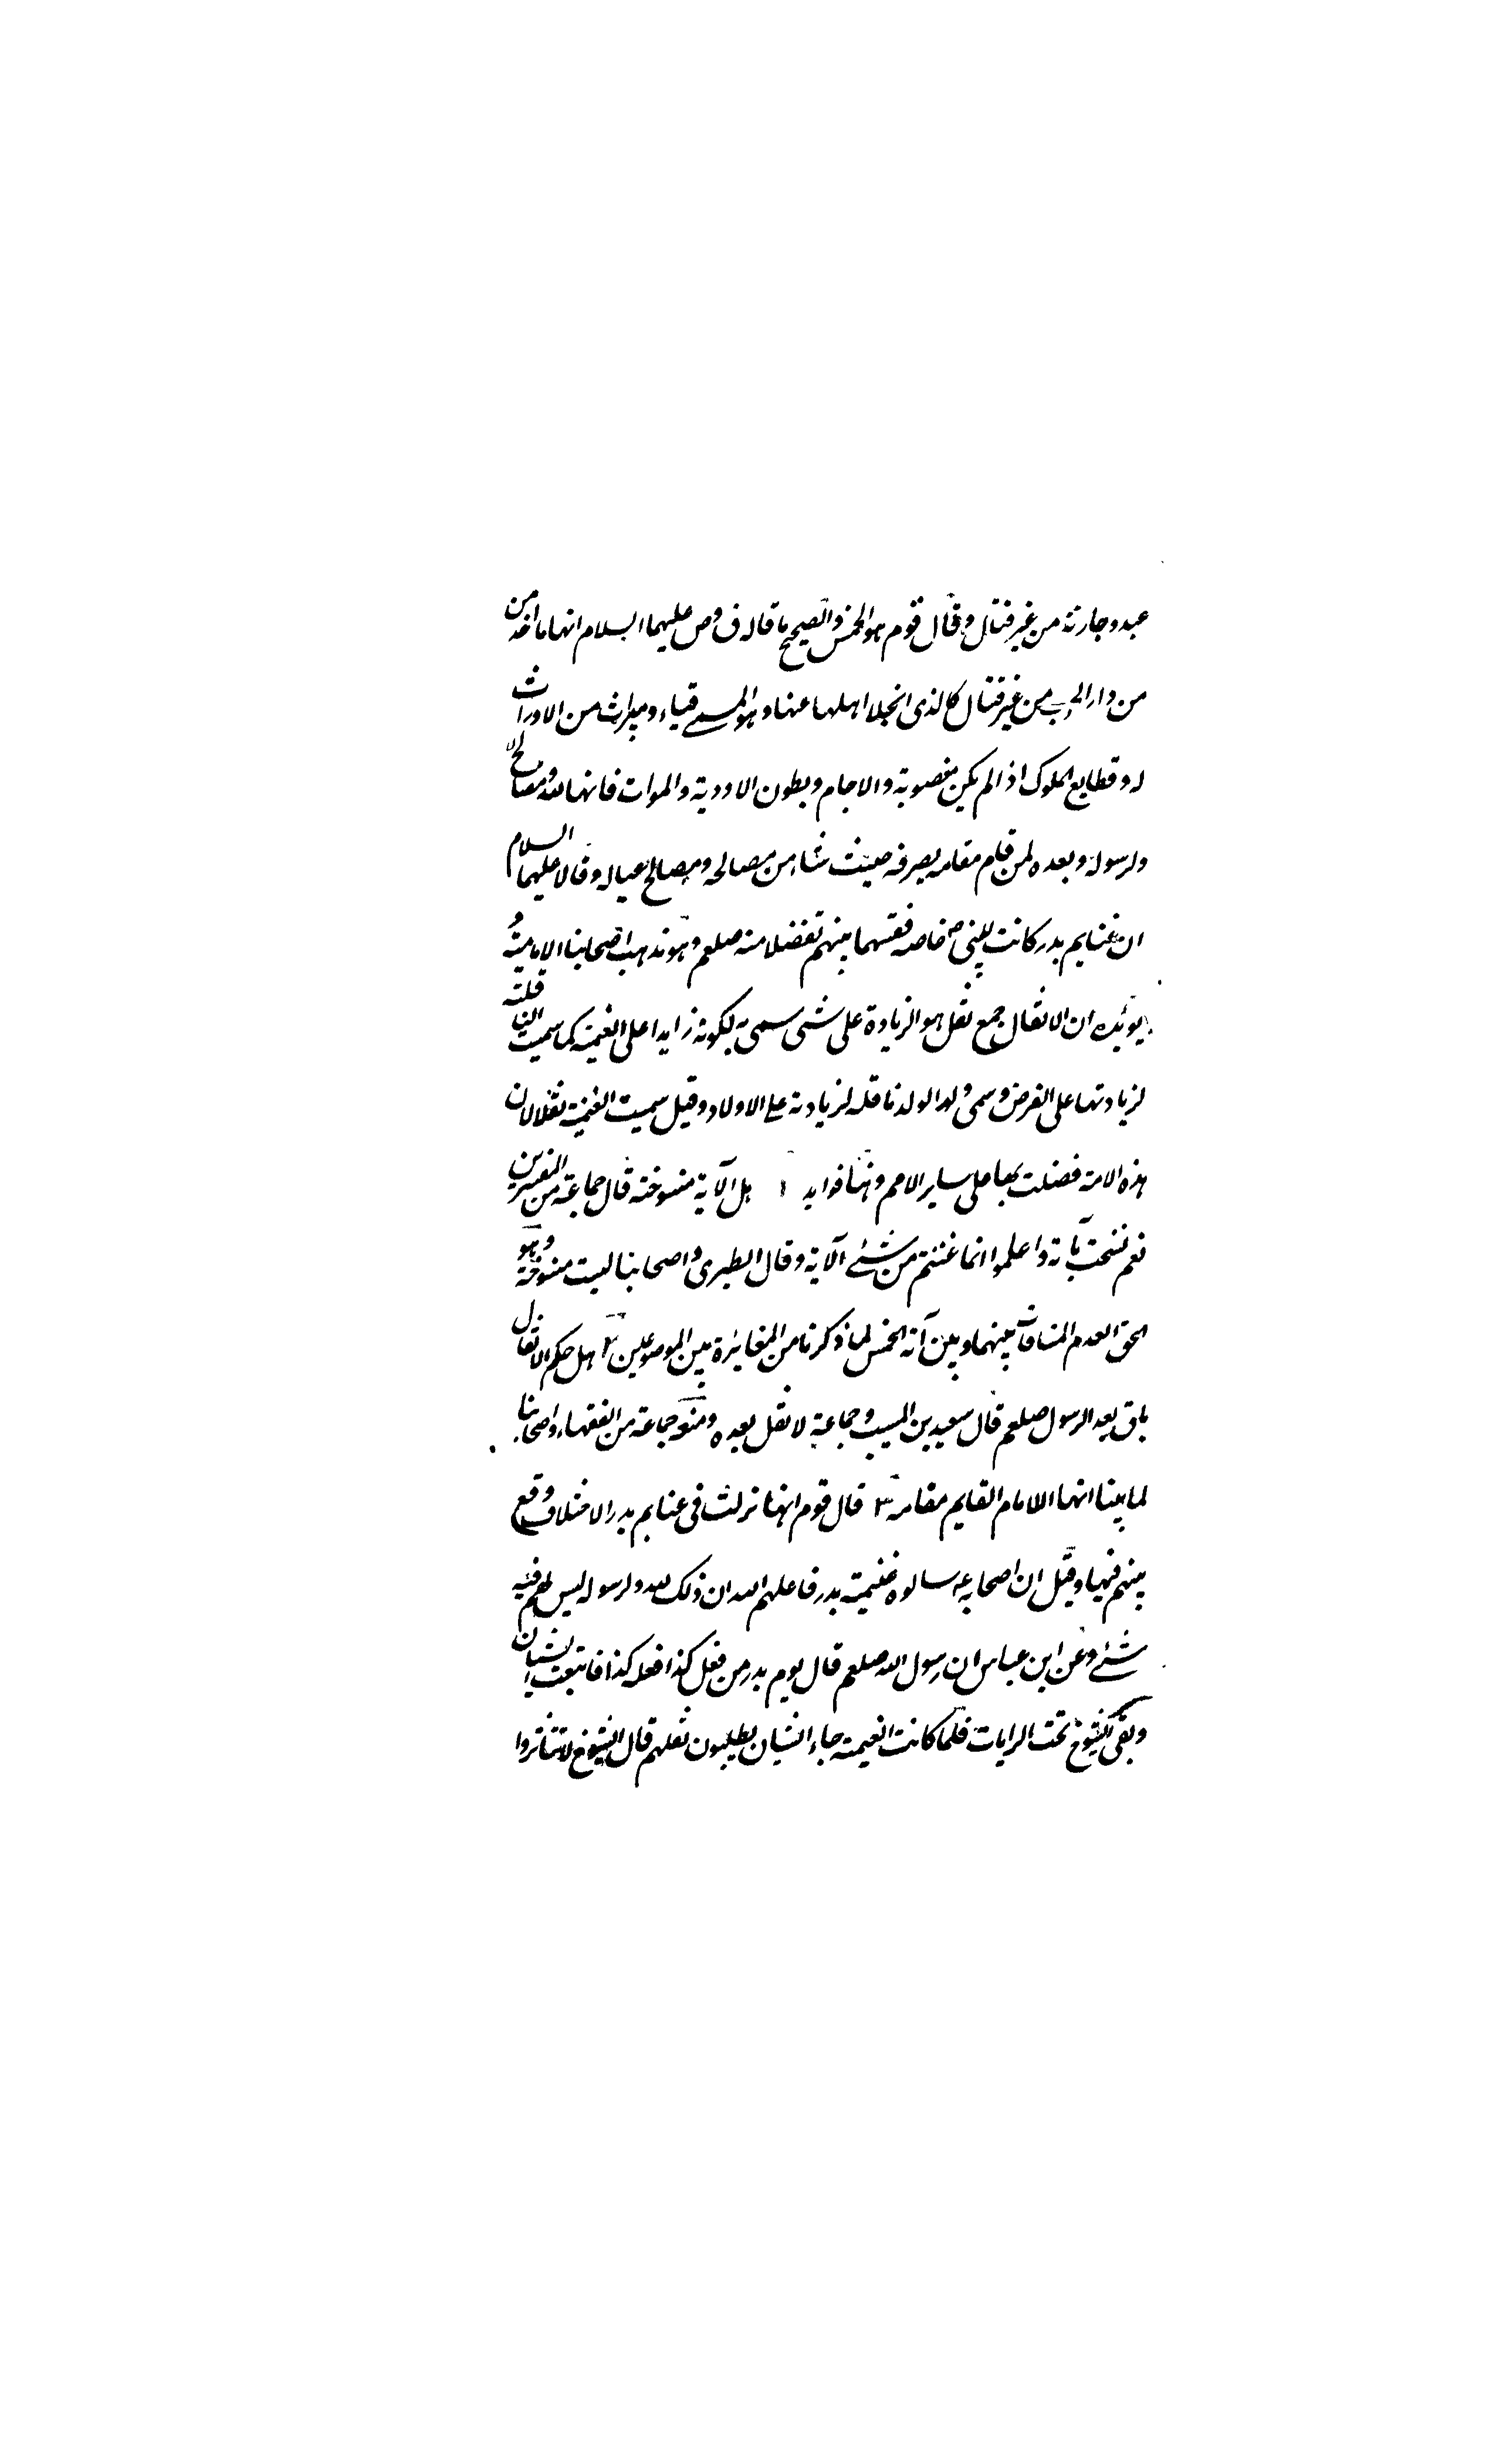 عبد وجارية من غير قتال وقال قوم هو الخمس والصحيح ما قاله ق وص عليهما السلام انها ما اخذ من
من دار الحرب من غير قتال كالذى انجلا اهلها عنها وهو المسمى فياء وميراث من لا وراث
له وقطايع الملوك اذا لم يكن مغصوبة والاجام وبطون الاودية والموات فانها لله
ولرسوله وبعده لمن قام مقامه يصرفه حيث شاء من مصالحه ومصالح عياله وقالا عليهما السلام
ان غنايم بدر كانت للنبى ص خاصة فقسمها بينهم تفضلا منه صلعم وهو مذهب اصحابنا الامامية
يؤيده ان الانفال جمع نفل هو الزيادة على شئ سمى به لكونه زايدا على الغنيمة كما سميت النافلة
لزيادتها على الفرض وسمى ولد الولد نافلة لزيادته على الاولاد وقيل سميت الغنيمة نفلا لان
هذه الامة فضلت بها على ساير الامم وهنا فوايد ١ هل الآية منسوخة قال جماعة من المفسرين
نعم نسخت بآية واعلموا انما غنمتم من شئ الآية وقال الطبرى واصحابنا ليست منسوخة وهو
الحق لعدم المنافات بينها وبين آية الخمس لما ذكرنا من المغايرة بين الموضوعين ٢ هل حكم الانفال
باق بعد الرسول صلعم قال سعيد بن المسيب وجماعة لا نفل بعده ومنعه جماعة من الفقهاء واصحابنا
لما بينا انها للامام القايم مقامه ٣ قال قوم انها نزلت فى غنايم بدر لاختلاف وقع
بينهم فيها وقيل ان اصحابه سالوه غنيمة بدر فاعلمهم الله ان ذلك لله ولرسوله ليس لهم فيه
شئ وعن ابن عباس ان رسول الله صلعم قال يوم بدر من فعل كذا فله كذا الشبان
وبقى الشيوخ تحت الرايات فلما كانت الغنيمة جاء الشبان يطلبون نفلهم قال الشيوخ لا تستاثروا